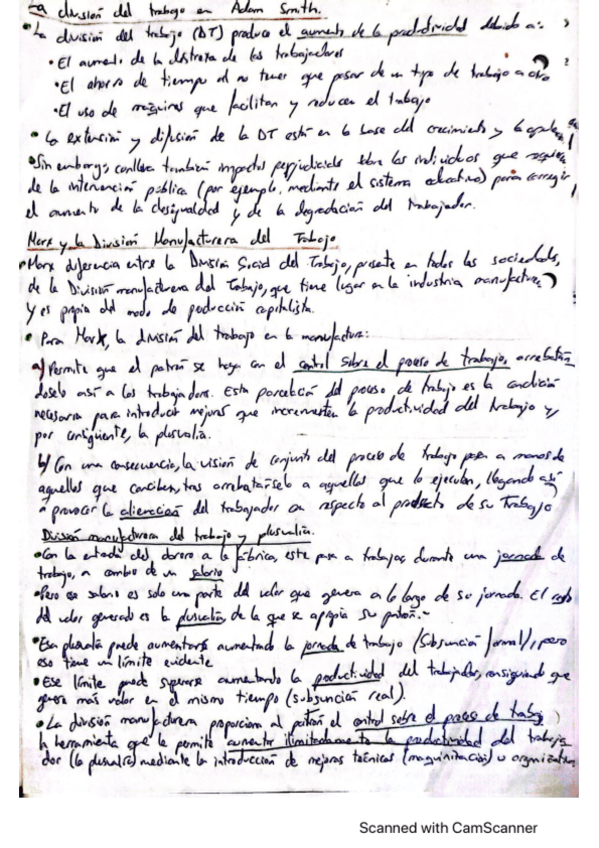 La división del trabajo en Adam Smith.
• La división del trabajo (DT) produce el aumento de la productividad debido a:
• El aumento de la destreza de los trabajadores
• El ahorro de tiempo al no tener que pasar de un tipo de trabajo a otro
• El uso de máquinas que facilitan y reducen el trabajo
• La extensión y difusión de la DT está en la base del crecimiento y la
• Sin embargo, conlleva también impactos perjudiciales sobre los individuos que requiere
de la intervención pública (por ejemplo, mediante el sistema educativo) para corregir
el aumento de la desigualdad y de la degradación del trabajador.
Marx y la División Manufacturera del Trabajo
• Marx diferencia entre la División Social del Trabajo, presente en todas las sociedades,
de la División manufacturera del Trabajo, que tiene lugar en la industria manufacturera
y es propia del modo de producción capitalista.
• Para Marx, la división del trabajo en la manufactura:
a) Permite que el patrón se haga con el control sobre el proceso de trabajo, arrebatán
doselo así a los trabajadores. Esta parcelación del proceso de trabajo es la condición
necesaria para introducir mejoras que incrementen la productividad del trabajo y,
por consiguiente, la plusvalía.
b) Con una consecuencia, la visión de conjunto del proceso de trabajo pasa a manos de
aquellos que conciben, tras arrebatárselo a aquellos que lo ejecutan, llegando así
a provocar la alienación del trabajador con respecto al producto de su Trabajo
División manufacturera del trabajo y plusvalía.
• Con la entrada del obrero a la fábrica, este pasa a trabajar durante una jornada de
trabajo, a cambio de un salario
• Pero ese salario es solo una parte del valor que genera a lo largo de su jornada. El resto
del valor generado es la plusvalía de la que se apropia su patrón.-
• Esa plusvalía puede aumentarse aumentando la jornada de trabajo (Subsunción formal), pero
eso tiene un límite evidente
• Ese límite puede superarse aumentando la productividad del trabajador, consiguiendo que
genere más valor en el mismo tiempo (subsunción real).
• La división manufacturera proporciona al patrón el control sobre el proceso de trabajo
la herramienta que le permite aumentar ilimitadamente la productividad del trabaja
dor (la plusvalía) mediante la introducción de mejoras técnicas (maquinización) u organizativas
Scanned with CamScanner